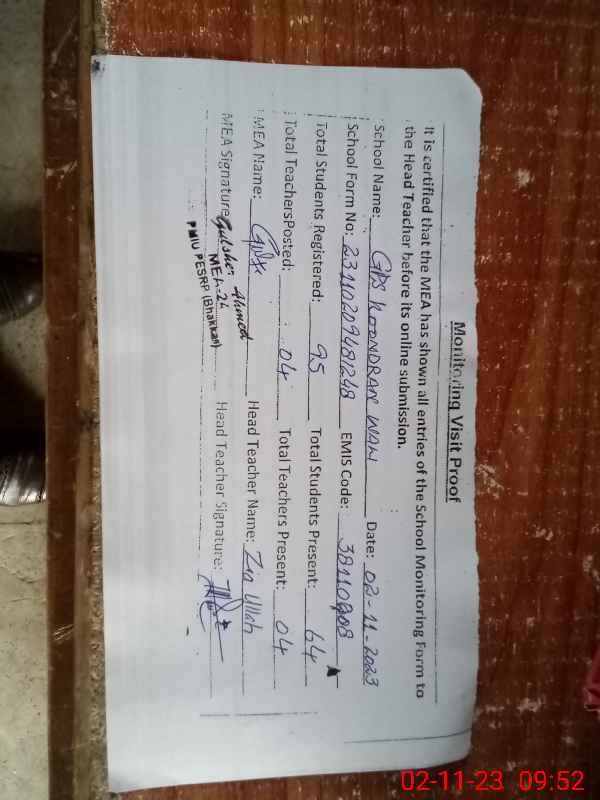 Monitoring Visit Proof
It is certified that the MEA has shown all entries of the School Monitoring Form to
the Head Teacher before its online submission.
School Name: GPS KOONDRAN WAH Date: 02-11-2023
School Form No: 23110209481248 EMIS Code: 38110208
Total Students Registered: 95 Total Students Present: 64
Total TeachersPosted: 04 Total Teachers Present: 04
MEA Name: Head Teacher Name: Zia Ullah
MEA Signature: Gulsher Ahmed Head Teacher Signature:
MEA-24
PMIU PESRP (Bhakkar)
02-11-23 09:52